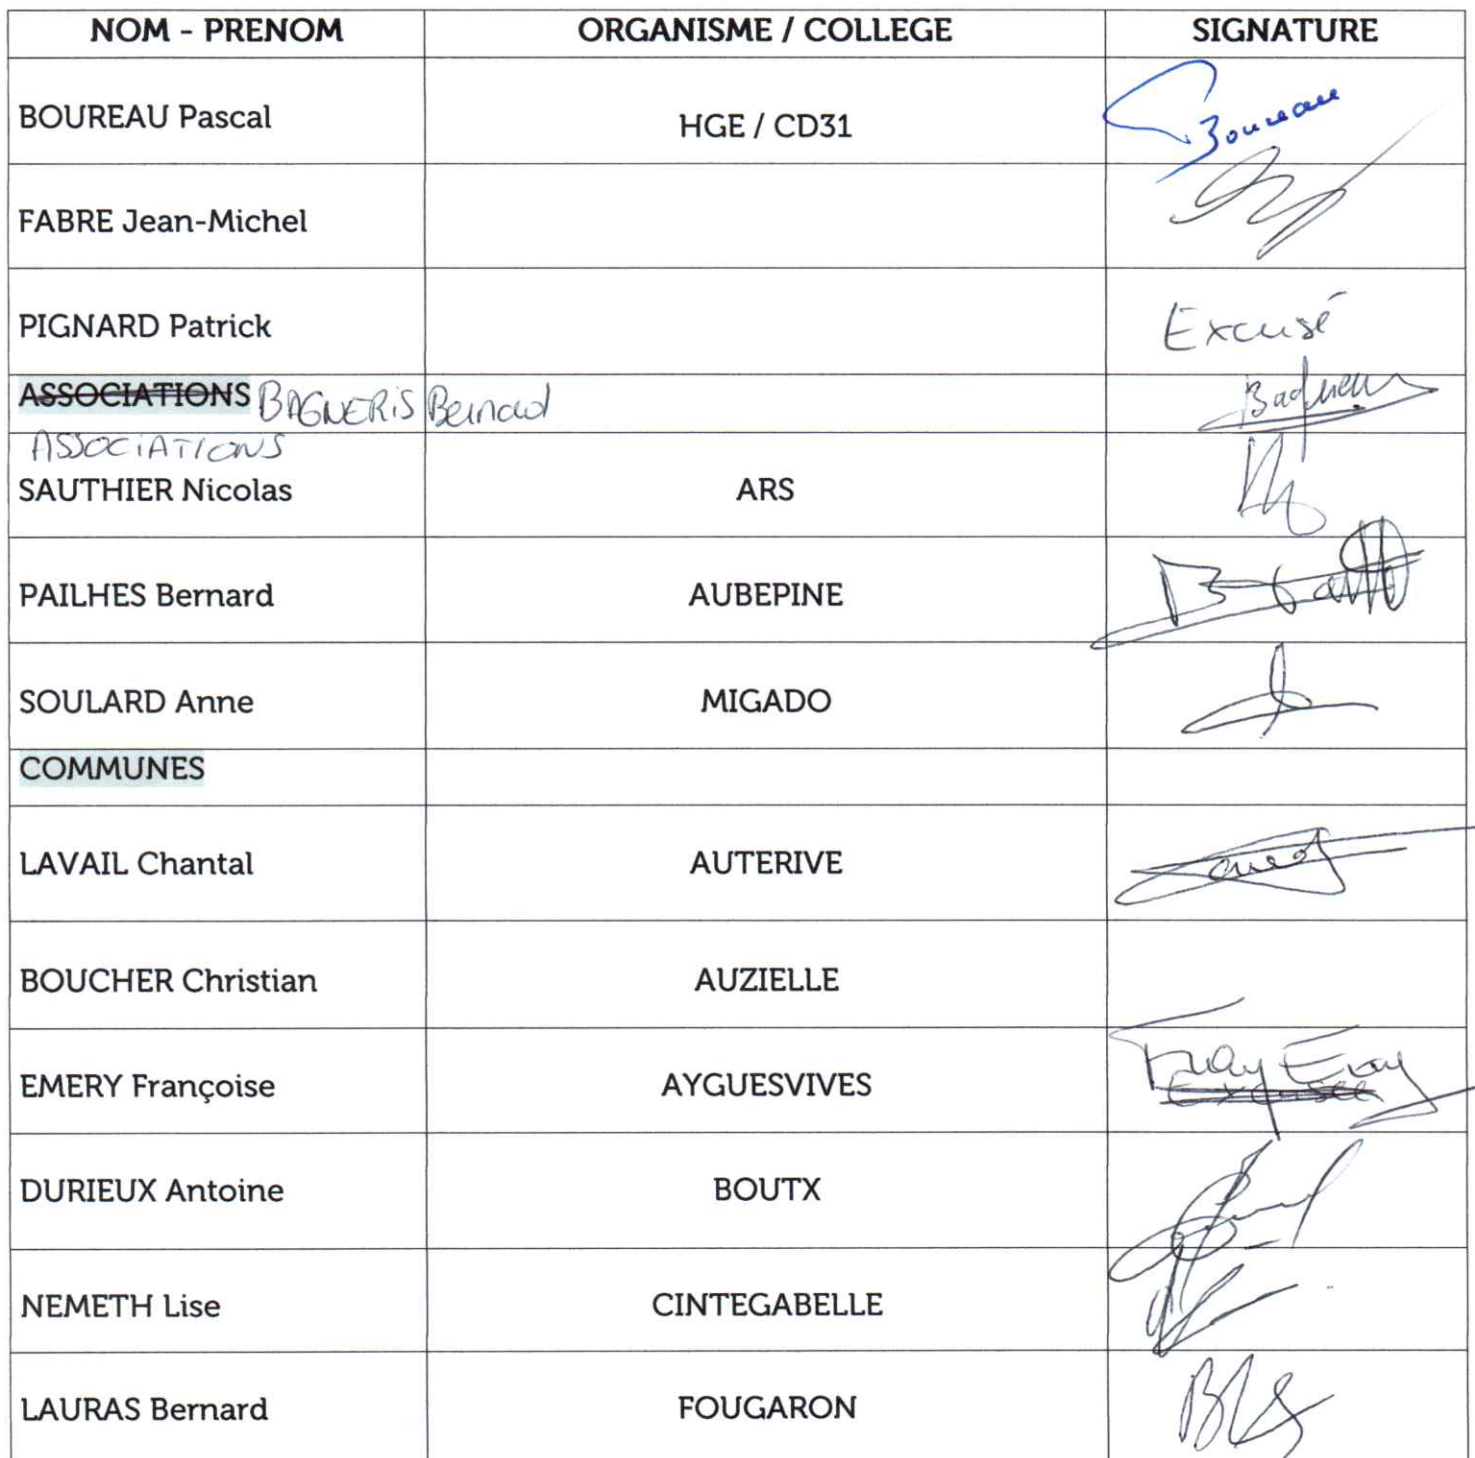 NOM - PRENOM ORGANISME / COLLEGE SIGNATURE
BOUREAU Pascal HGE / CD31 Boureau
FABRE Jean-Michel
PIGNARD Patrick Excusé
ASSOCIATIONS BAGNERIS Bernard
ASSOCIATIONS
SAUTHIER Nicolas ARS
PAILHES Bernard AUBEPINE
SOULARD Anne MIGADO
COMMUNES
LAVAIL Chantal AUTERIVE
BOUCHER Christian AUZIELLE
EMERY Françoise AYGUESVIVES Excusée
DURIEUX Antoine BOUTX
NEMETH Lise CINTEGABELLE
LAURAS Bernard FOUGARON